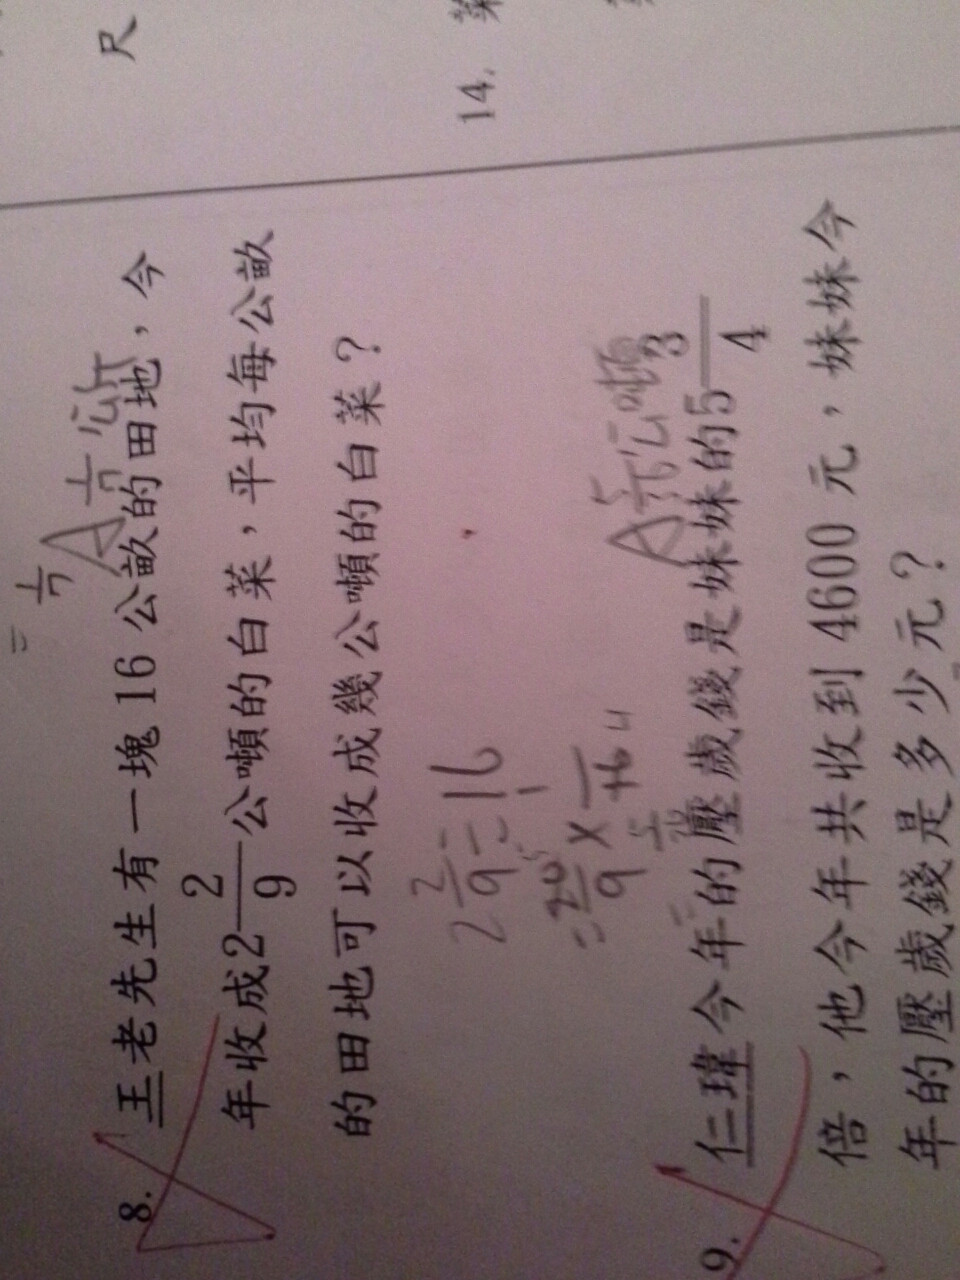 尺
14.
= 1/7
A 1/7 公斤
8. 王老先生有一塊16公畝的田地，今
年收成2 2/9公噸的白菜，平均每公畝
的田地可以收成幾公噸的白菜？
2 2/9 ÷ 16
= 20/9 × 1/16
A 5/36 公噸
9. 仁瑋今年的壓歲錢是妹妹的5 3/4
倍，他今年共收到4600元，妹妹今
年的壓歲錢是多少元？